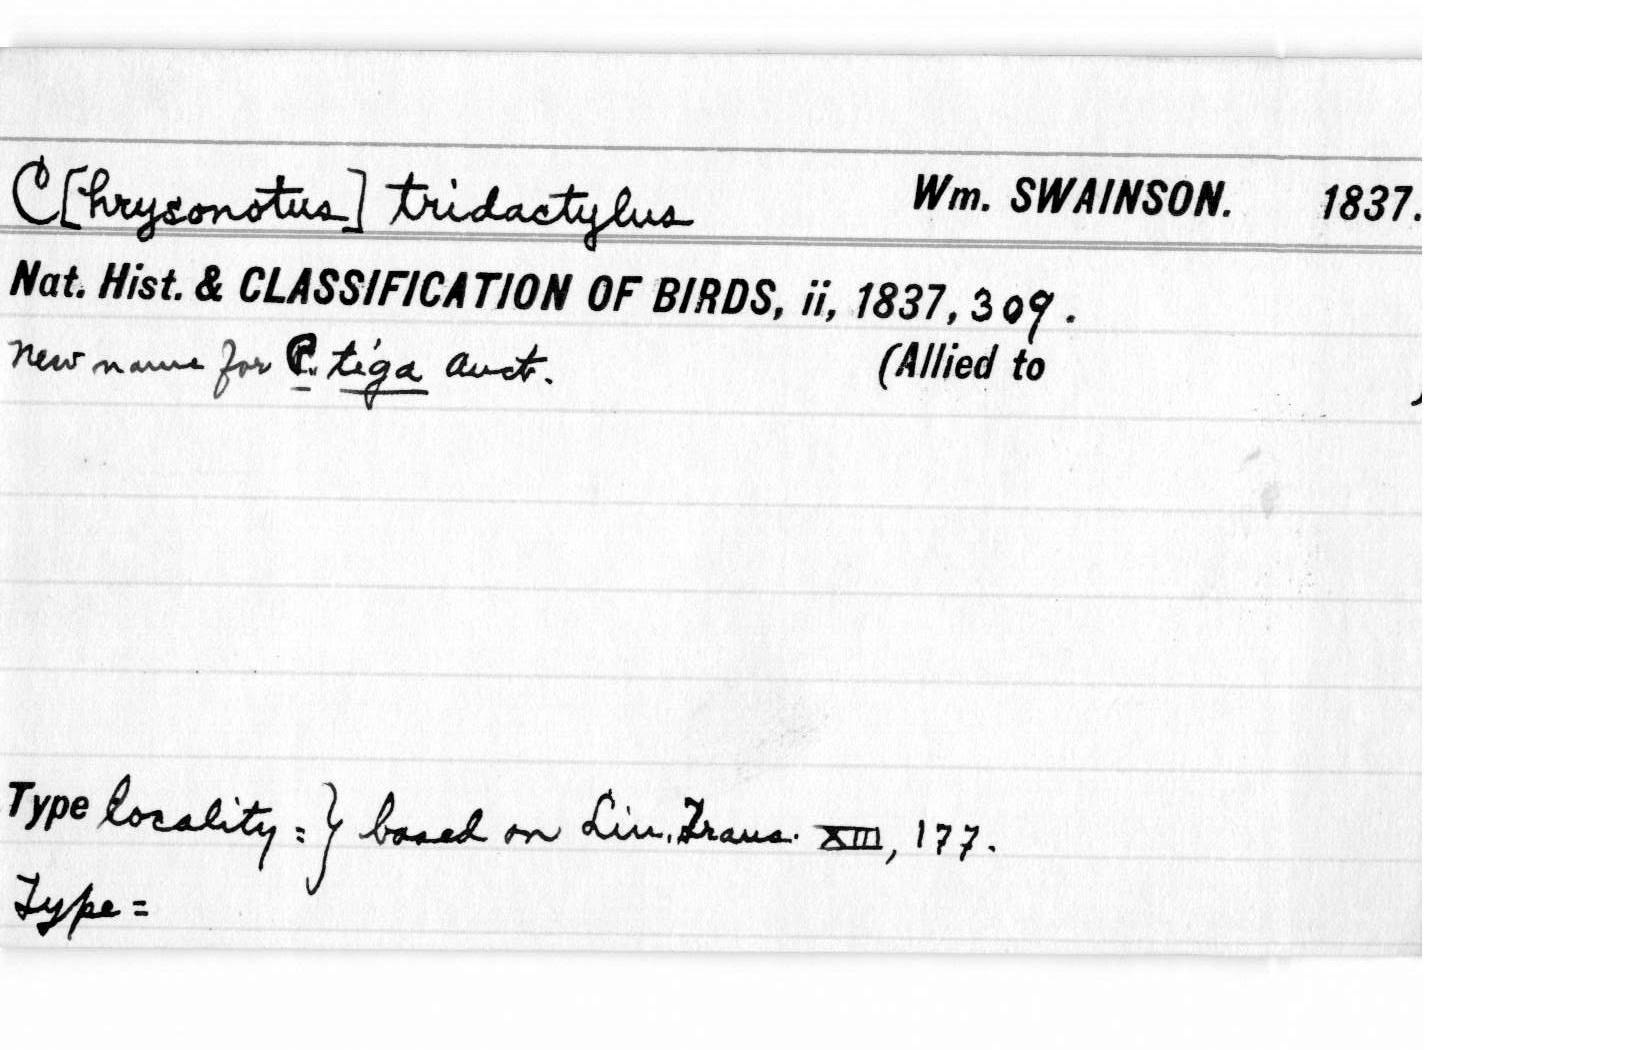 C[hrysonotus] tridactylus Wm. SWAINSON. 1837.
Nat. Hist. & CLASSIFICATION OF BIRDS, ii, 1837, 309.
new name for P. tiga auct. (Allied to )
Type locality = } based on Lin. Trans. XIII, 177.
Type =